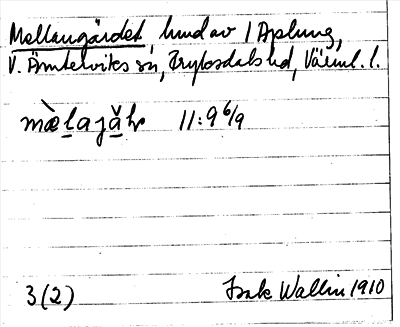 Mellangärdet, hmd av 1 Aplung,
V. Ämterviks sn, Fryksdals hd, Värml. l.
mæ̀lajăh 11:9 6/9
3(2) Isak Wallin 1910